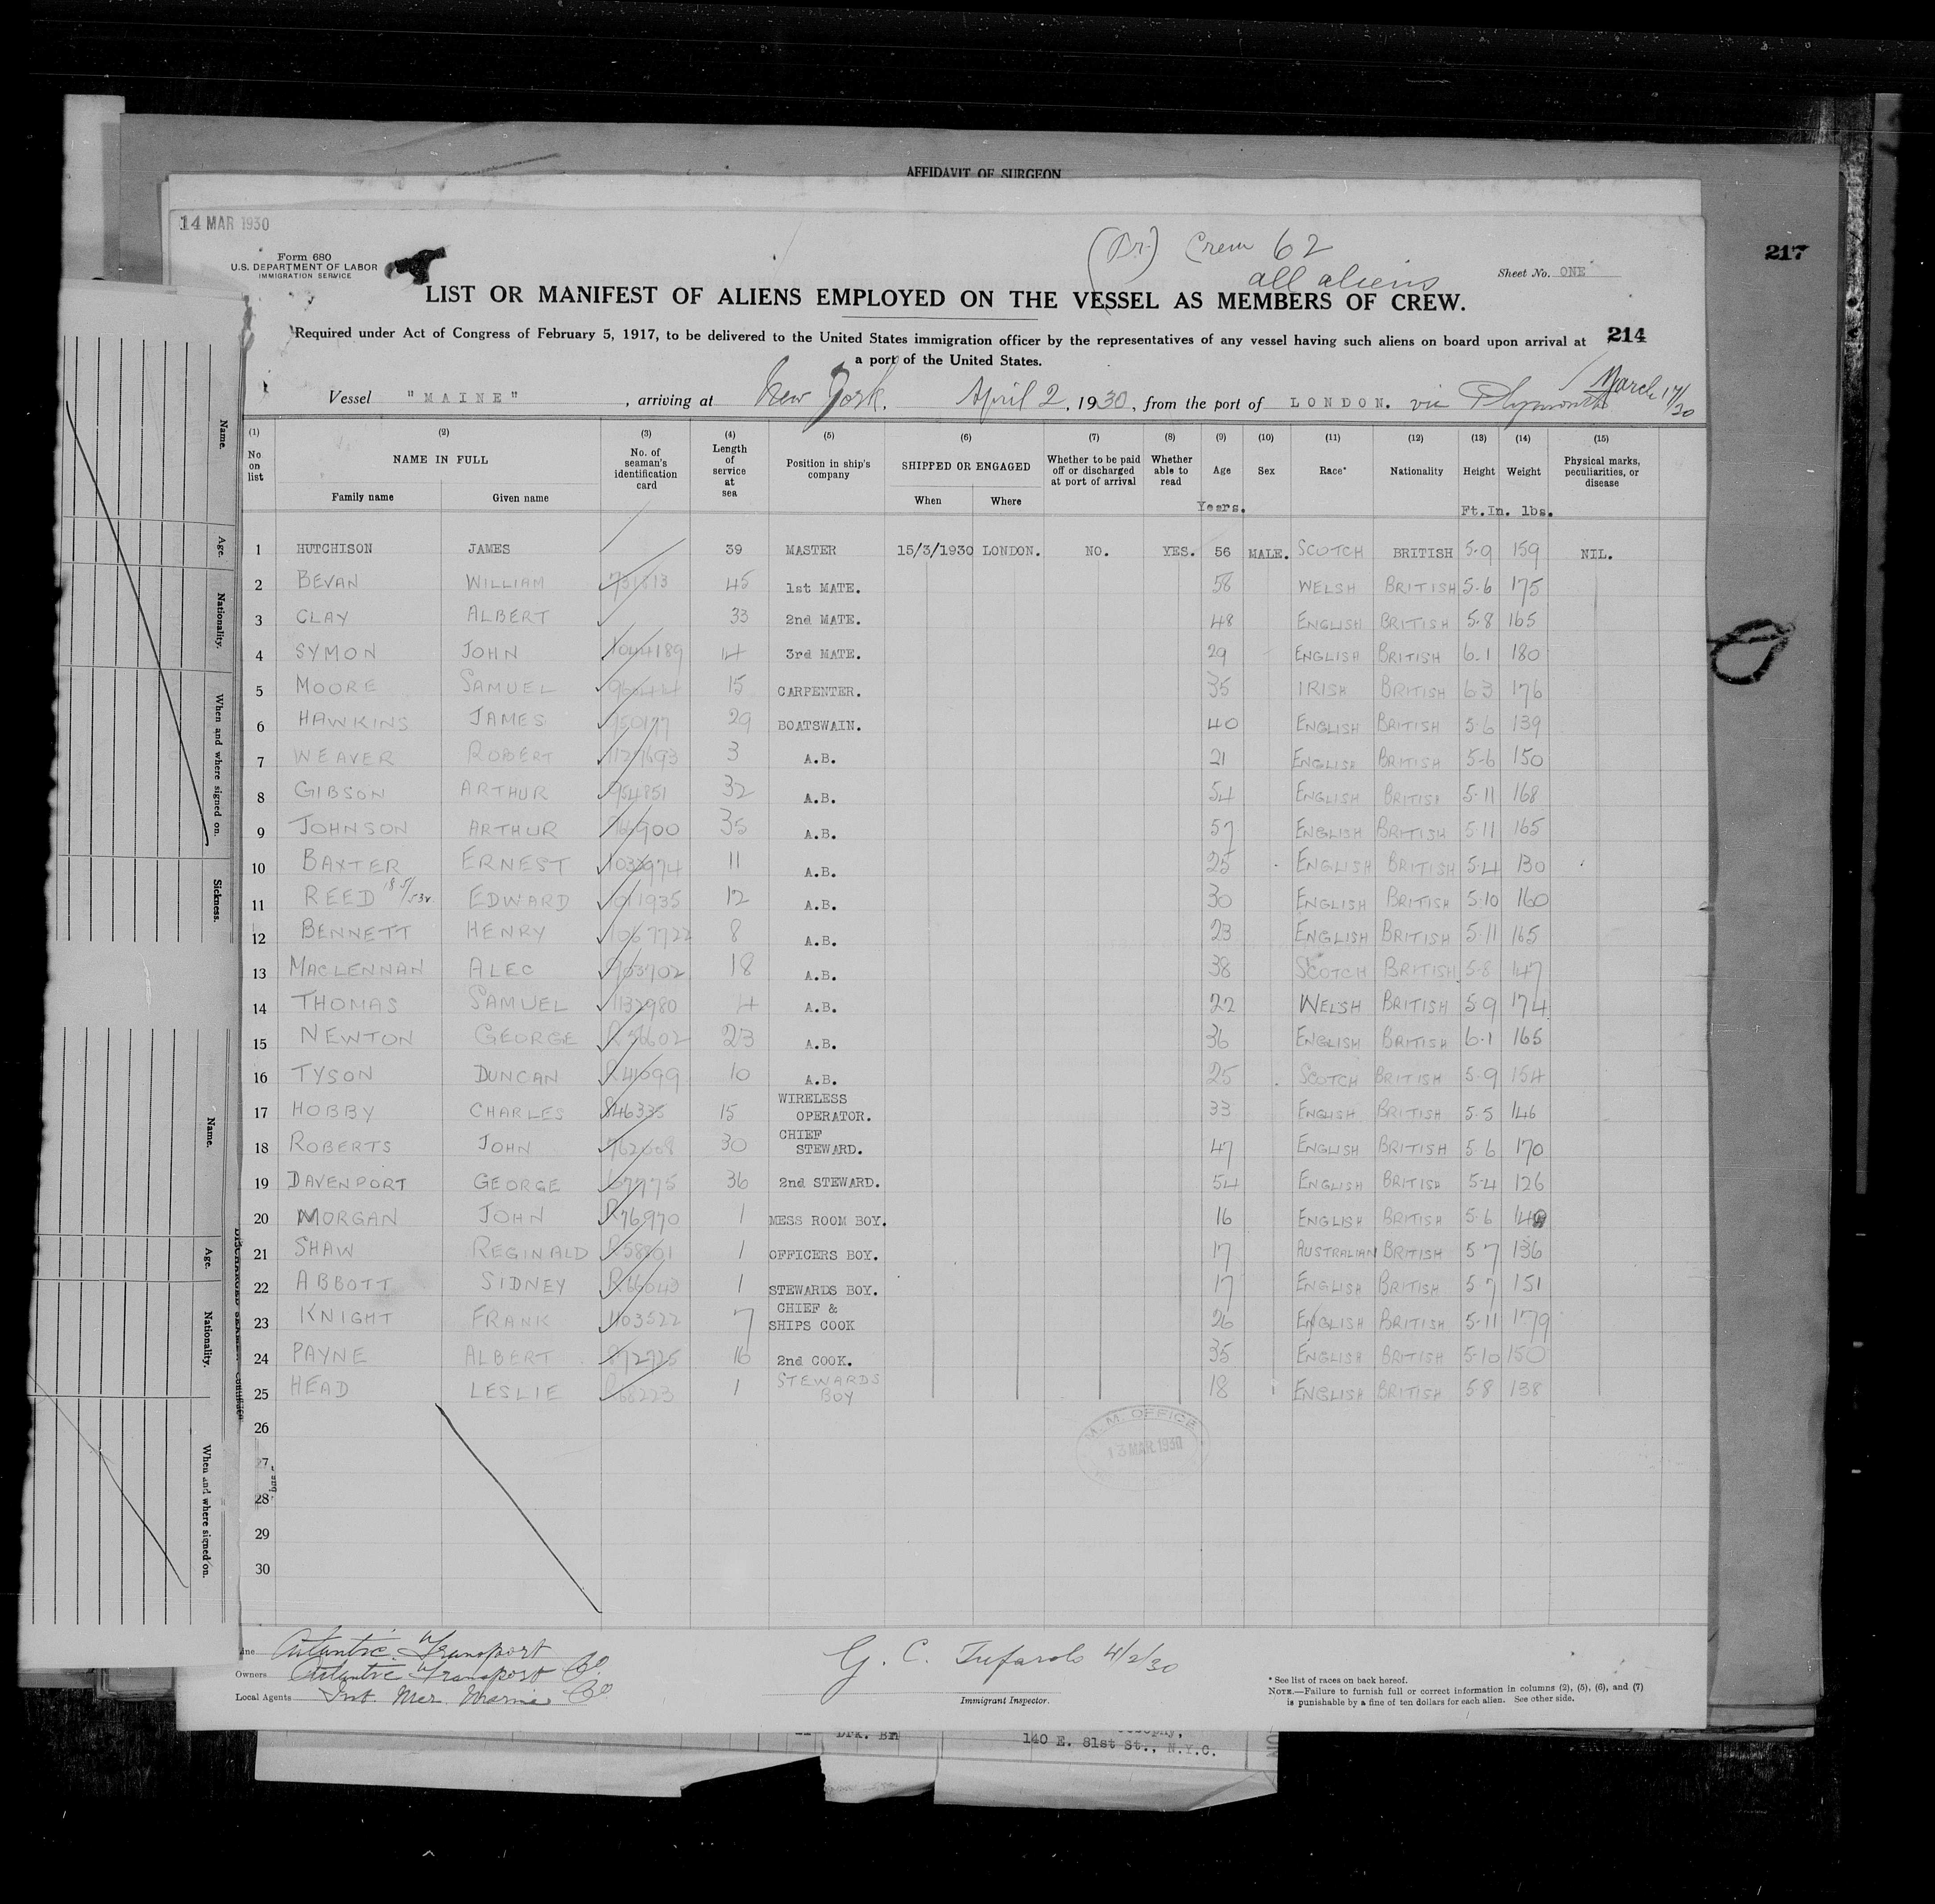 AFFIDAVIT OF SURGEON
217
14 MAR 1930
Form 680
U.S. DEPARTMENT OF LABOR
IMMIGRATION SERVICE
(Br.) Crew 62
all aliens
Sheet No. ONE
LIST OR MANIFEST OF ALIENS EMPLOYED ON THE VESSEL AS MEMBERS OF CREW.
Required under Act of Congress of February 5, 1917, to be delivered to the United States immigration officer by the representatives of any vessel having such aliens on board upon arrival at
a port of the United States.
214
Vessel "MAINE", arriving at New York. April 2, 1930, from the port of LONDON. via Plymouth March 17/30
(1) (2) (3) (4) (5) (6) (7) (8) (9) (10) (11) (12) (13) (14) (15)
No. on list NAME IN FULL Family name Given name No. of seaman's identification card Length of service at sea Position in ship's company SHIPPED OR ENGAGED When Where Whether to be paid off or discharged at port of arrival Whether able to read Age Sex Race* Nationality Height Weight Physical marks, peculiarities, or disease
Years. Ft.In. lbs.
1 HUTCHISON JAMES 39 MASTER 15/3/1930 LONDON. NO. YES. 56 MALE. SCOTCH BRITISH 5-9 159 NIL.
2 BEVAN WILLIAM 45 1st MATE. 58 WELSH BRITISH 5-6 175
3 CLAY ALBERT 33 2nd MATE. 48 ENGLISH BRITISH 5-8 165
4 SYMON JOHN 1044189 14 3rd MATE. 29 ENGLISH BRITISH 6-1 180
5 MOORE SAMUEL 15 CARPENTER. 35 IRISH BRITISH 6 3 176
6 HAWKINS JAMES 950177 29 BOATSWAIN. 40 ENGLISH BRITISH 5-6 139
7 WEAVER ROBERT 1127693 3 A.B. 21 ENGLISH BRITISH 5-6 150
8 GIBSON ARTHUR 954851 32 A.B. 54 ENGLISH BRITISH 5-11 168
9 JOHNSON ARTHUR 35 A.B. 57 ENGLISH BRITISH 5-11 165
10 BAXTER ERNEST 1032974 11 A.B. 25 ENGLISH BRITISH 5-4 130
11 REED EDWARD 1011935 12 A.B. 30 ENGLISH BRITISH 5-10 160
12 BENNETT HENRY 1067722 8 A.B. 23 ENGLISH BRITISH 5-11 165
13 MACLENNAN ALEC 903702 18 A.B. 38 SCOTCH BRITISH 5-8 147
14 THOMAS SAMUEL 1132980 4 A.B. 22 WELSH BRITISH 5-9 174
15 NEWTON GEORGE 23 A.B. 36 ENGLISH BRITISH 6-1 165
16 TYSON DUNCAN R41099 10 A.B. 25 SCOTCH BRITISH 5-9 154
17 HOBBY CHARLES 846335 15 WIRELESS OPERATOR. 33 ENGLISH BRITISH 5-5 146
18 ROBERTS JOHN 762608 30 CHIEF STEWARD. 47 ENGLISH BRITISH 5-6 170
19 DAVENPORT GEORGE 36 2nd STEWARD. 54 ENGLISH BRITISH 5-4 126
20 MORGAN JOHN R76970 1 MESS ROOM BOY. 16 ENGLISH BRITISH 5-6
21 SHAW REGINALD R58801 1 OFFICERS BOY. 17 AUSTRALIAN BRITISH 5 7 136
22 ABBOTT SIDNEY 1 STEWARDS BOY. 17 ENGLISH BRITISH 5 7 151
23 KNIGHT FRANK 1103522 7 CHIEF & SHIPS COOK 26 ENGLISH BRITISH 5-11 179
24 PAYNE ALBERT 872725 16 2nd COOK. 35 ENGLISH BRITISH 5-10 150
25 HEAD LESLIE R68223 1 STEWARDS BOY 18 ENGLISH BRITISH 5-8 138
26
27
28
29
30
M. M. OFFICE
13 MAR 1930
Line Atlantic Transport
Owners Atlantic Transport Co.
Local Agents Int. Mer. Marine Co
G. C. Tufarolo 4/2/30
Immigrant Inspector.
* See list of races on back hereof.
NOTE.—Failure to furnish full or correct information in columns (2), (5), (6), and (7)
is punishable by a fine of ten dollars for each alien. See other side.
Name.
Age.
Nationality.
When and where signed on.
Sickness.
Name.
Age.
Nationality.
When and where signed on.
Drk. Br
140 E. 81st St., N.Y.C.